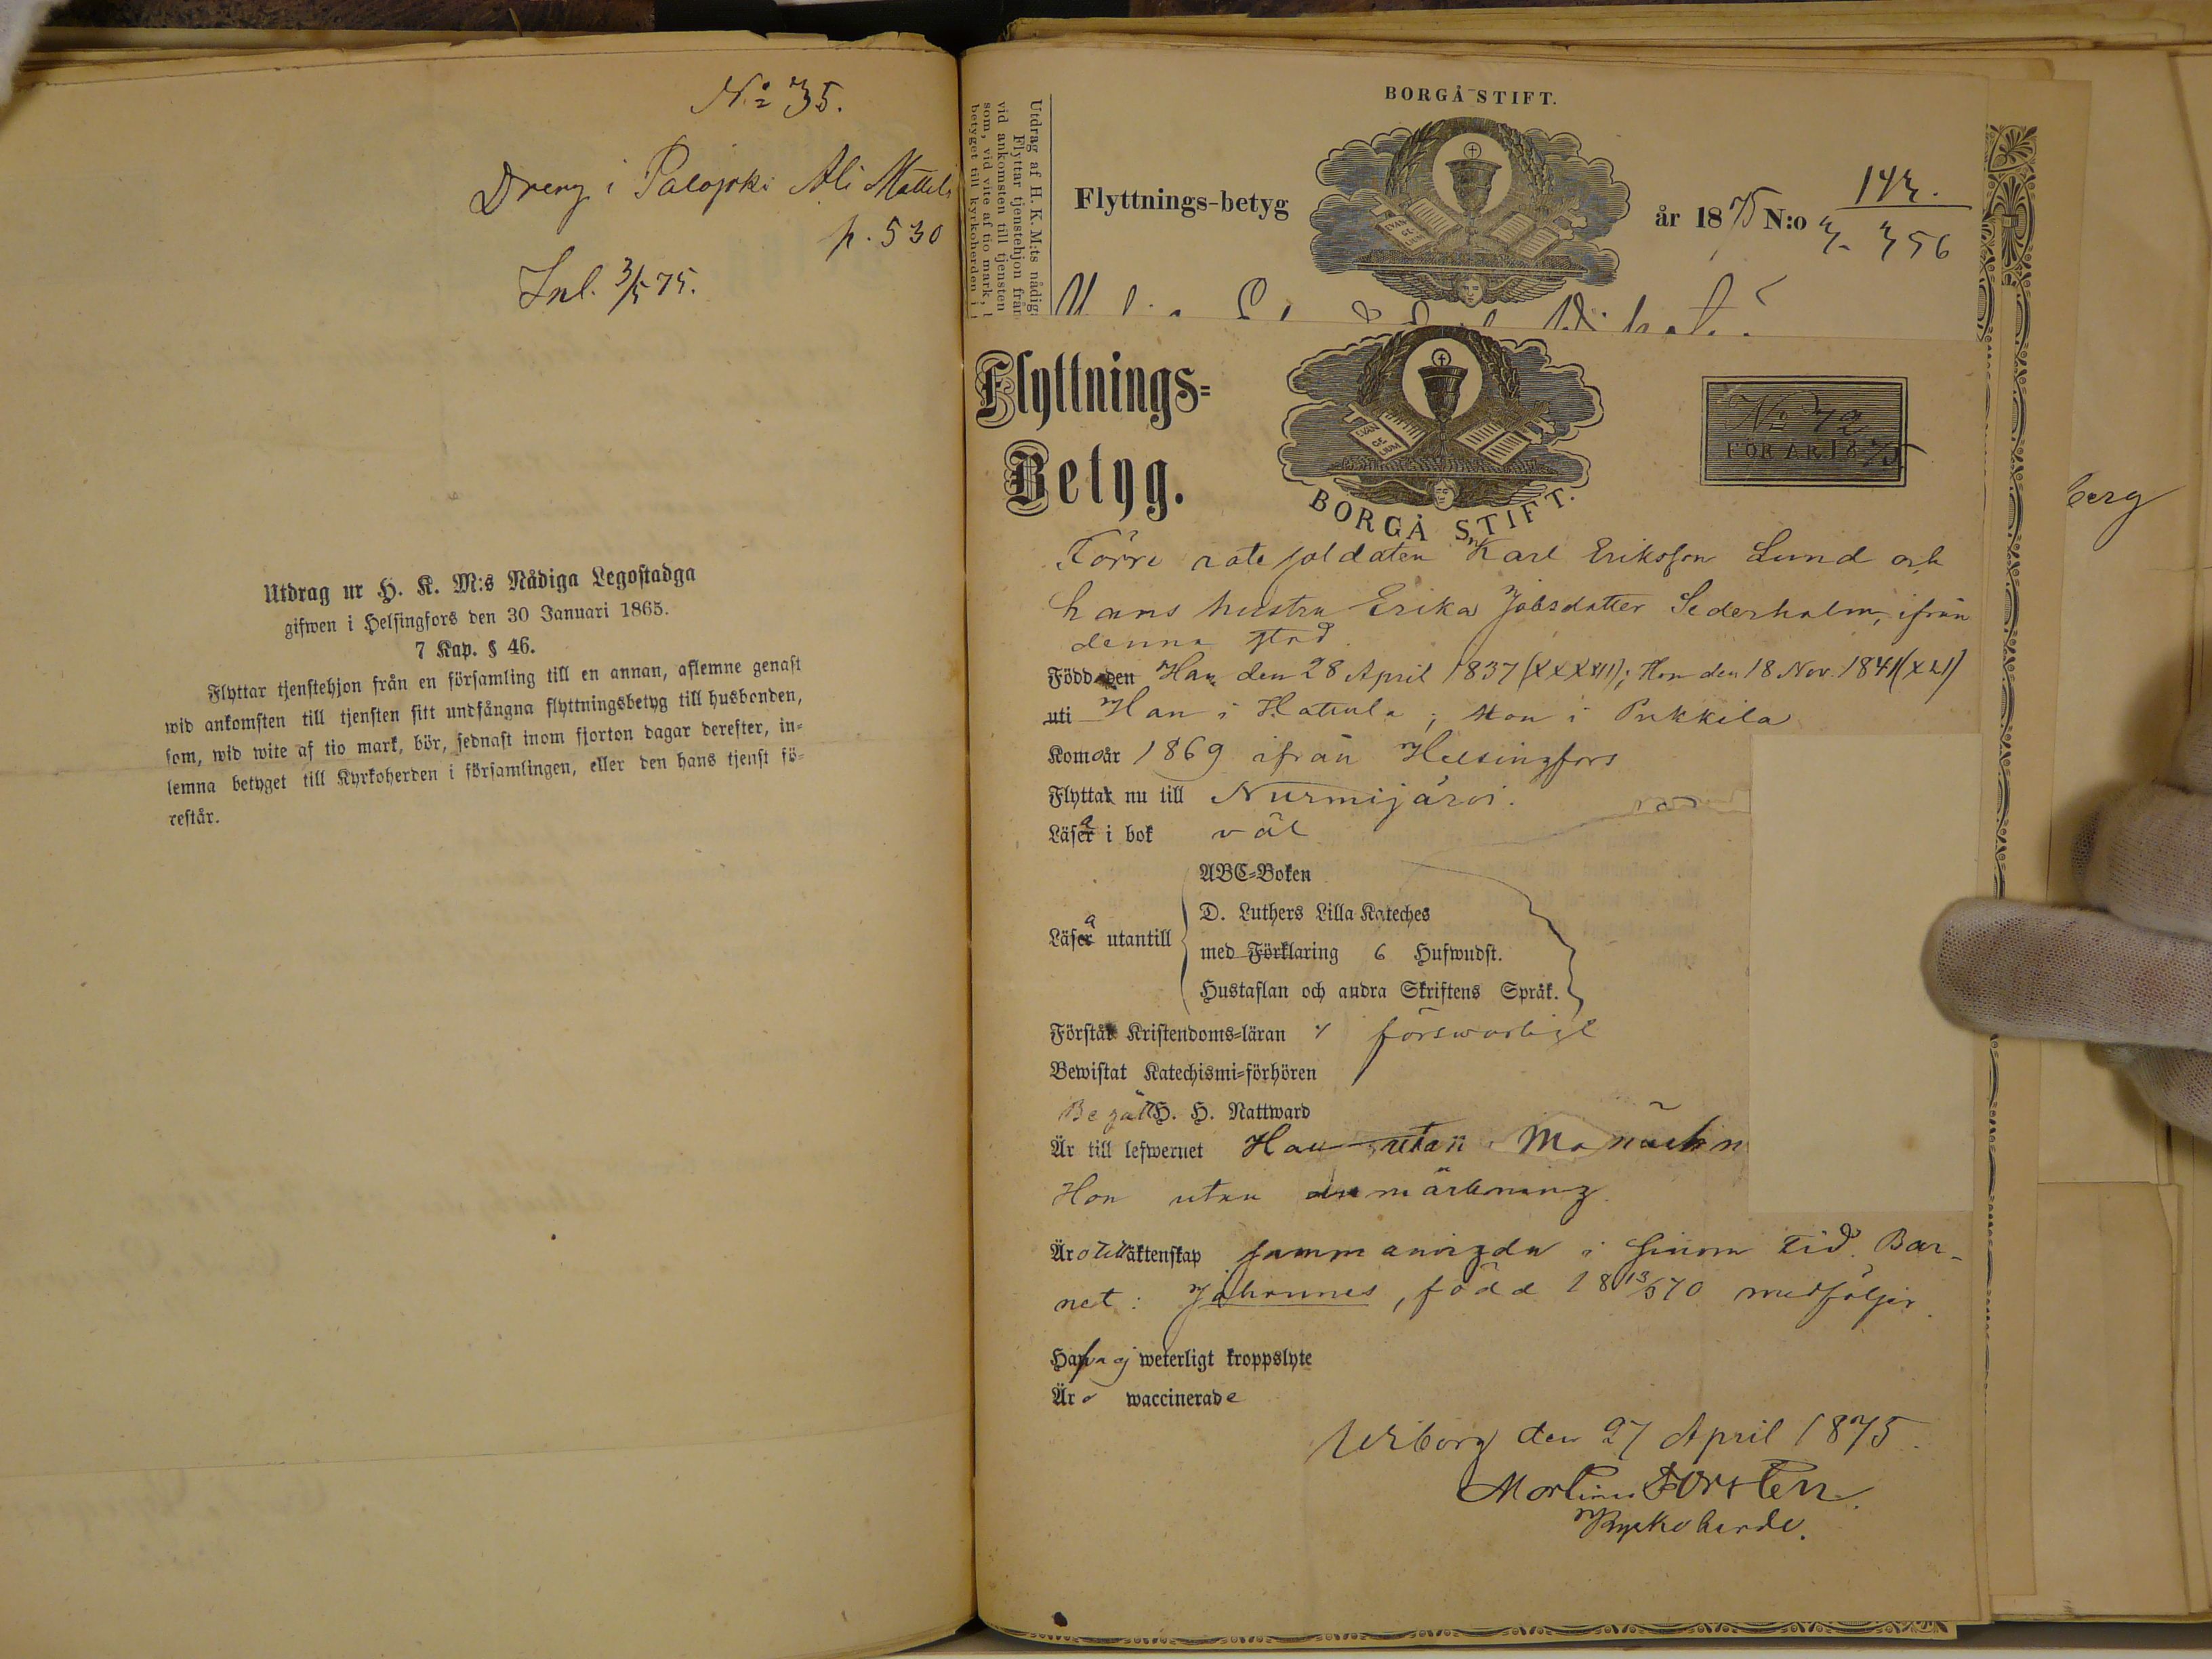 No 35.
Dreng i Palojoki Ali Mattila
p. 530
Inl. 3/5 75.
Utdrag ur H. K. M:s Nådiga Legostadga
gifwen i Helsingfors den 30 Januari 1865.
7 Kap. § 46.
Flyttar tjenstehjon från en församling till en annan, aflemne genast
wid ankomsten till tjensten sitt undfångna flyttningsbetyg till husbonden,
som, wid wite af tio mark, bör, sednast inom fjorton dagar derefter, in-
lemna betyget till Kyrkoherden i församlingen, eller den hans tjenst fö-
restår.
Utdrag af H. K. M:ts nådig
Flyttar tjenstehjon från
vid ankomsten till tjensten
som, vid vite af tio mark,
betyget till kyrkoherden i
BORGÅ STIFT.
Flyttnings-betyg
EVAN
GE-
LIUM
år 1875 N:o
356
Flyttnings-
Betyg.
EVAN
GE
LIUM
BORGÅ STIFT.
No 72
FÖR ÅR 1875
Förre rotesoldaten Karl Eriksson Lund och
hans hustru Erika Jobsdotter Sederholm, ifrån
denna stad.
Född den Han den 28 April 1837 (XXXVII); Hon den 18 Nov. 1841 (XLI)
uti Han i Hattula; Hon i Pukkila
Komo år 1869 ifrån Helsingfors
Flyttar nu till Nurmijärvi.
Läsa i bok väl
ABC-Boken
D. Luthers Lilla Kateches
Läsa utantill
med Förklaring 6 Hufwudst.
Hustaflan och andra Skriftens Språk.
Förstå Kristendoms-läran försvarligt
Bewistat Katechismi-förhören
Begått H. H. Nattward
Är till lefwernet Han utan
Hon utan anmärkning.
Äro till äktenskap sammanvigda i sinom tid. Bar-
net: Johannes, född 18 13/5 70 medföljer.
Hafva ej weterligt kroppslyte
Äro waccinerade
Wiborg den 27 April 1875.
Martin Forsten.
Kyrkoherde.
berg